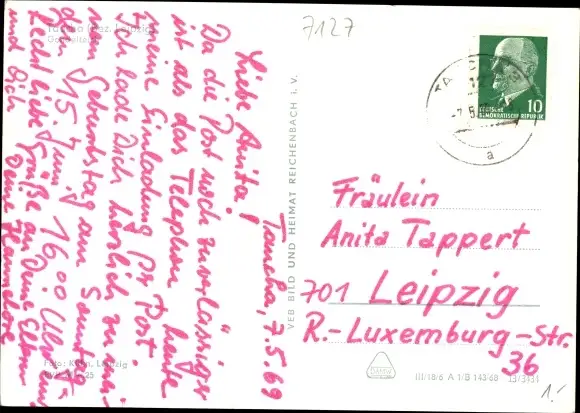 7127
Taucha (Bez. Leipzig)
Taucha, 7.5.69
Liebe Anita!
Da die Post noch zuverlässiger
ist als das Telephon, heute
meine Einladung per Post.
Ich lade Dich herzlich zu mei-
nem Geburtstag am Sonntag
dem 15. Juni, 16.00 Uhr ein.
Recht liebe Grüße an Deine Eltern
und Dich
Deine Hannelore
Leipzig
VEB BILD UND HEIMAT REICHENBACH i. V.
10
DEUTSCHE
DEMOKRATISCHE REPUBLIK
a
Fräulein
Anita Tappert
701 Leipzig
R.-Luxemburg-Str.
36
III/18/6 A 1/B 143/68 13/3131
1.-